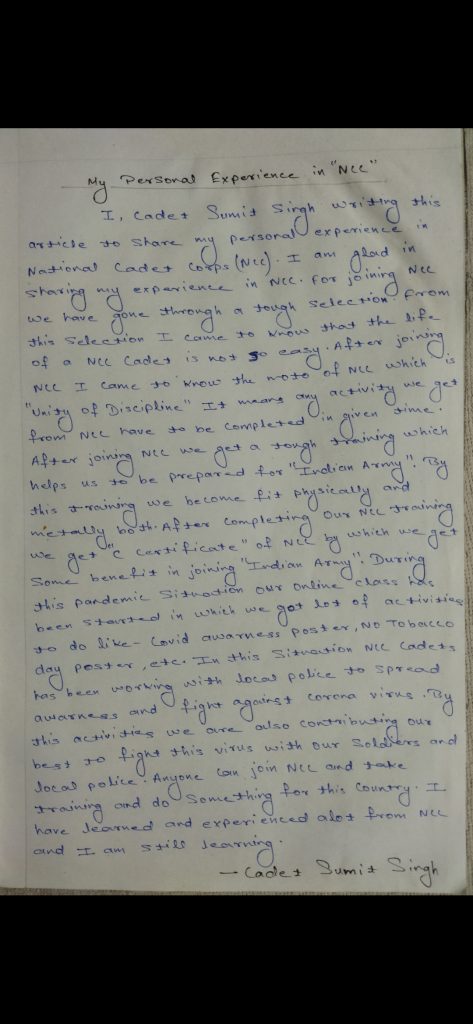 My Personal Experience in "NCC"
I, Cadet Sumit Singh writing this
article to share my personal experience in
National Cadet Corps (NCC). I am glad in
sharing my experience in NCC. For joining NCC
we have gone through a tough selection. From
this selection I came to know that the life
of a NCC Cadet is not so easy. After joining
NCC I came to know the moto of NCC which is
"Unity of Discipline" It means any activity we get
from NCC have to be completed in given time.
After joining NCC we get a tough training which
helps us to be prepared for "Indian Army". By
this training we become fit physically and
metally both. After completing our NCC training
we get "C certificate" of NCC by which we get
some benefit in joining "Indian Army". During
this pandemic situation our online class has
been started in which we got lot of activities
to do like - Covid awarness poster, No Tobacco
day poster, etc. In this situation NCC cadets
has been working with local police to spread
awarness and fight against corona virus. By
this activities we are also contributing our
best to fight this virus with our soldiers and
local police. Anyone can join NCC and take
training and do something for this country. I
have learned and experienced alot from NCC
and I am still learning.
- Cadet Sumit Singh